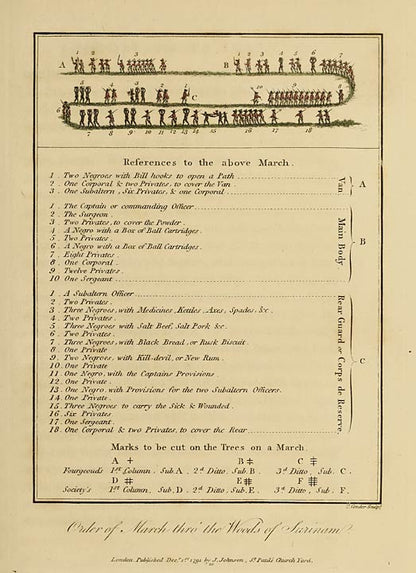 A 1 2 3
B 1 2 3 4 5 6 7
C
References to the above March.
1. Two Negroes with Bill hooks to open a Path
2. One Corporal & two Privates, to cover the Van
3. One Subaltern, Six Privates, & one Corporal
Van A
1. The Captain or commanding Officer
2. The Surgeon.
3. Two Privates, to cover the Powder
4. A Negro with a Box of Ball Cartridges.
5. Two Privates.
6. A Negro with a Box of Ball Cartridges.
7. Eight Privates.
8. One Corporal.
9. Twelve Privates.
10. One Sergeant.
Main Body B
1. A Subaltern Officer.
2. Two Privates.
3. Three Negroes, with Medicines, Kettles, Axes, Spades, &c.
4. Two Privates.
5. Three Negroes with Salt Beef, Salt Pork &c.
6. Two Privates.
7. Three Negroes, with Black Bread, or Rusk Biscuit.
8. One Private
9. Two Negroes, with Kill-devil, or New Rum.
10. One Private
11. One Negro, with the Captains Provisions
12. One Private.
13. One Negro, with Provisions for the two Subaltern Officers.
14. One Private.
15. Three Negroes to carry the Sick & Wounded.
16. Six Privates
17. One Sergeant.
18. One Corporal & two Privates, to cover the Rear
Rear Guard or Corps de Reserve. C
Marks to be cut on the Trees on a March.
A B C
Fourgeouds 1st Column, Sub. A. 2d Ditto, Sub. B. 3d Ditto, Sub. C.
D E F
Society's 1st Column, Sub. D. 2d Ditto, Sub. E. 3d Ditto, Sub. F.
Conder Sculpt.
Order of March thro' the Woods of Surinam
London. Published Decr. 1st 1791 by J. Johnson, St. Pauls Church Yard.